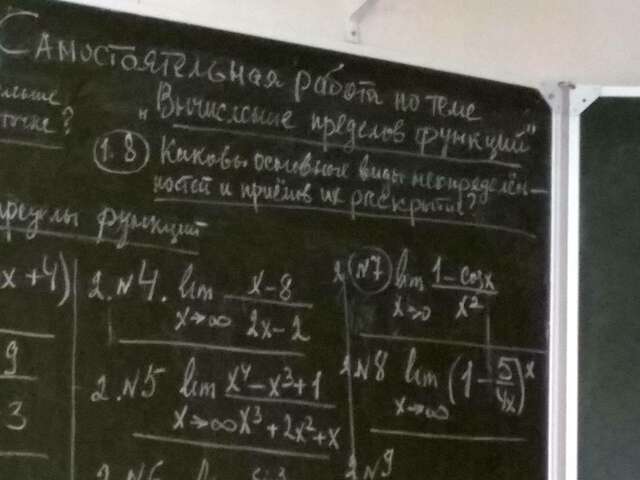 Самостоятельная работа по теме
"Вычисление пределов функций"
точке?
1.8 Каковы основные виды неопределён-
ностей и приёмов их раскрытия?
пределы функций
x + 4)
9
3
2. №4. lim x→∞ (x-8)/(2x-2)
2. №5 lim x→∞ (x⁴-x³+1)/(x³+2x²+x)
2. №6
2 №7 lim x→0 (1-cosx)/x²
2 №8 lim x→∞ (1-5/4x)^x
2 №9